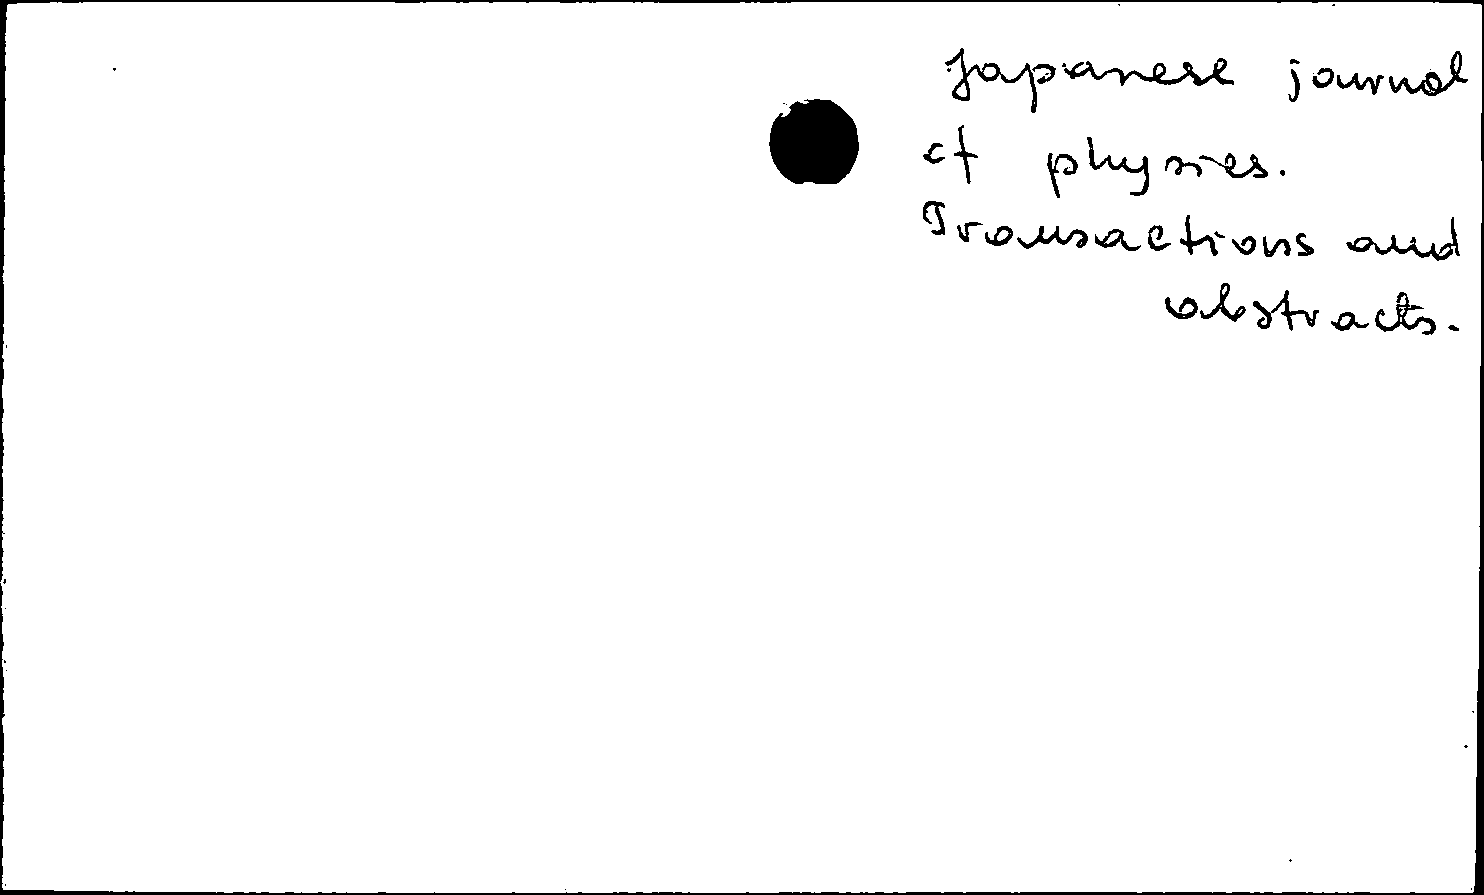 Japanese journal
of physics.
Transactions and
abstracts.